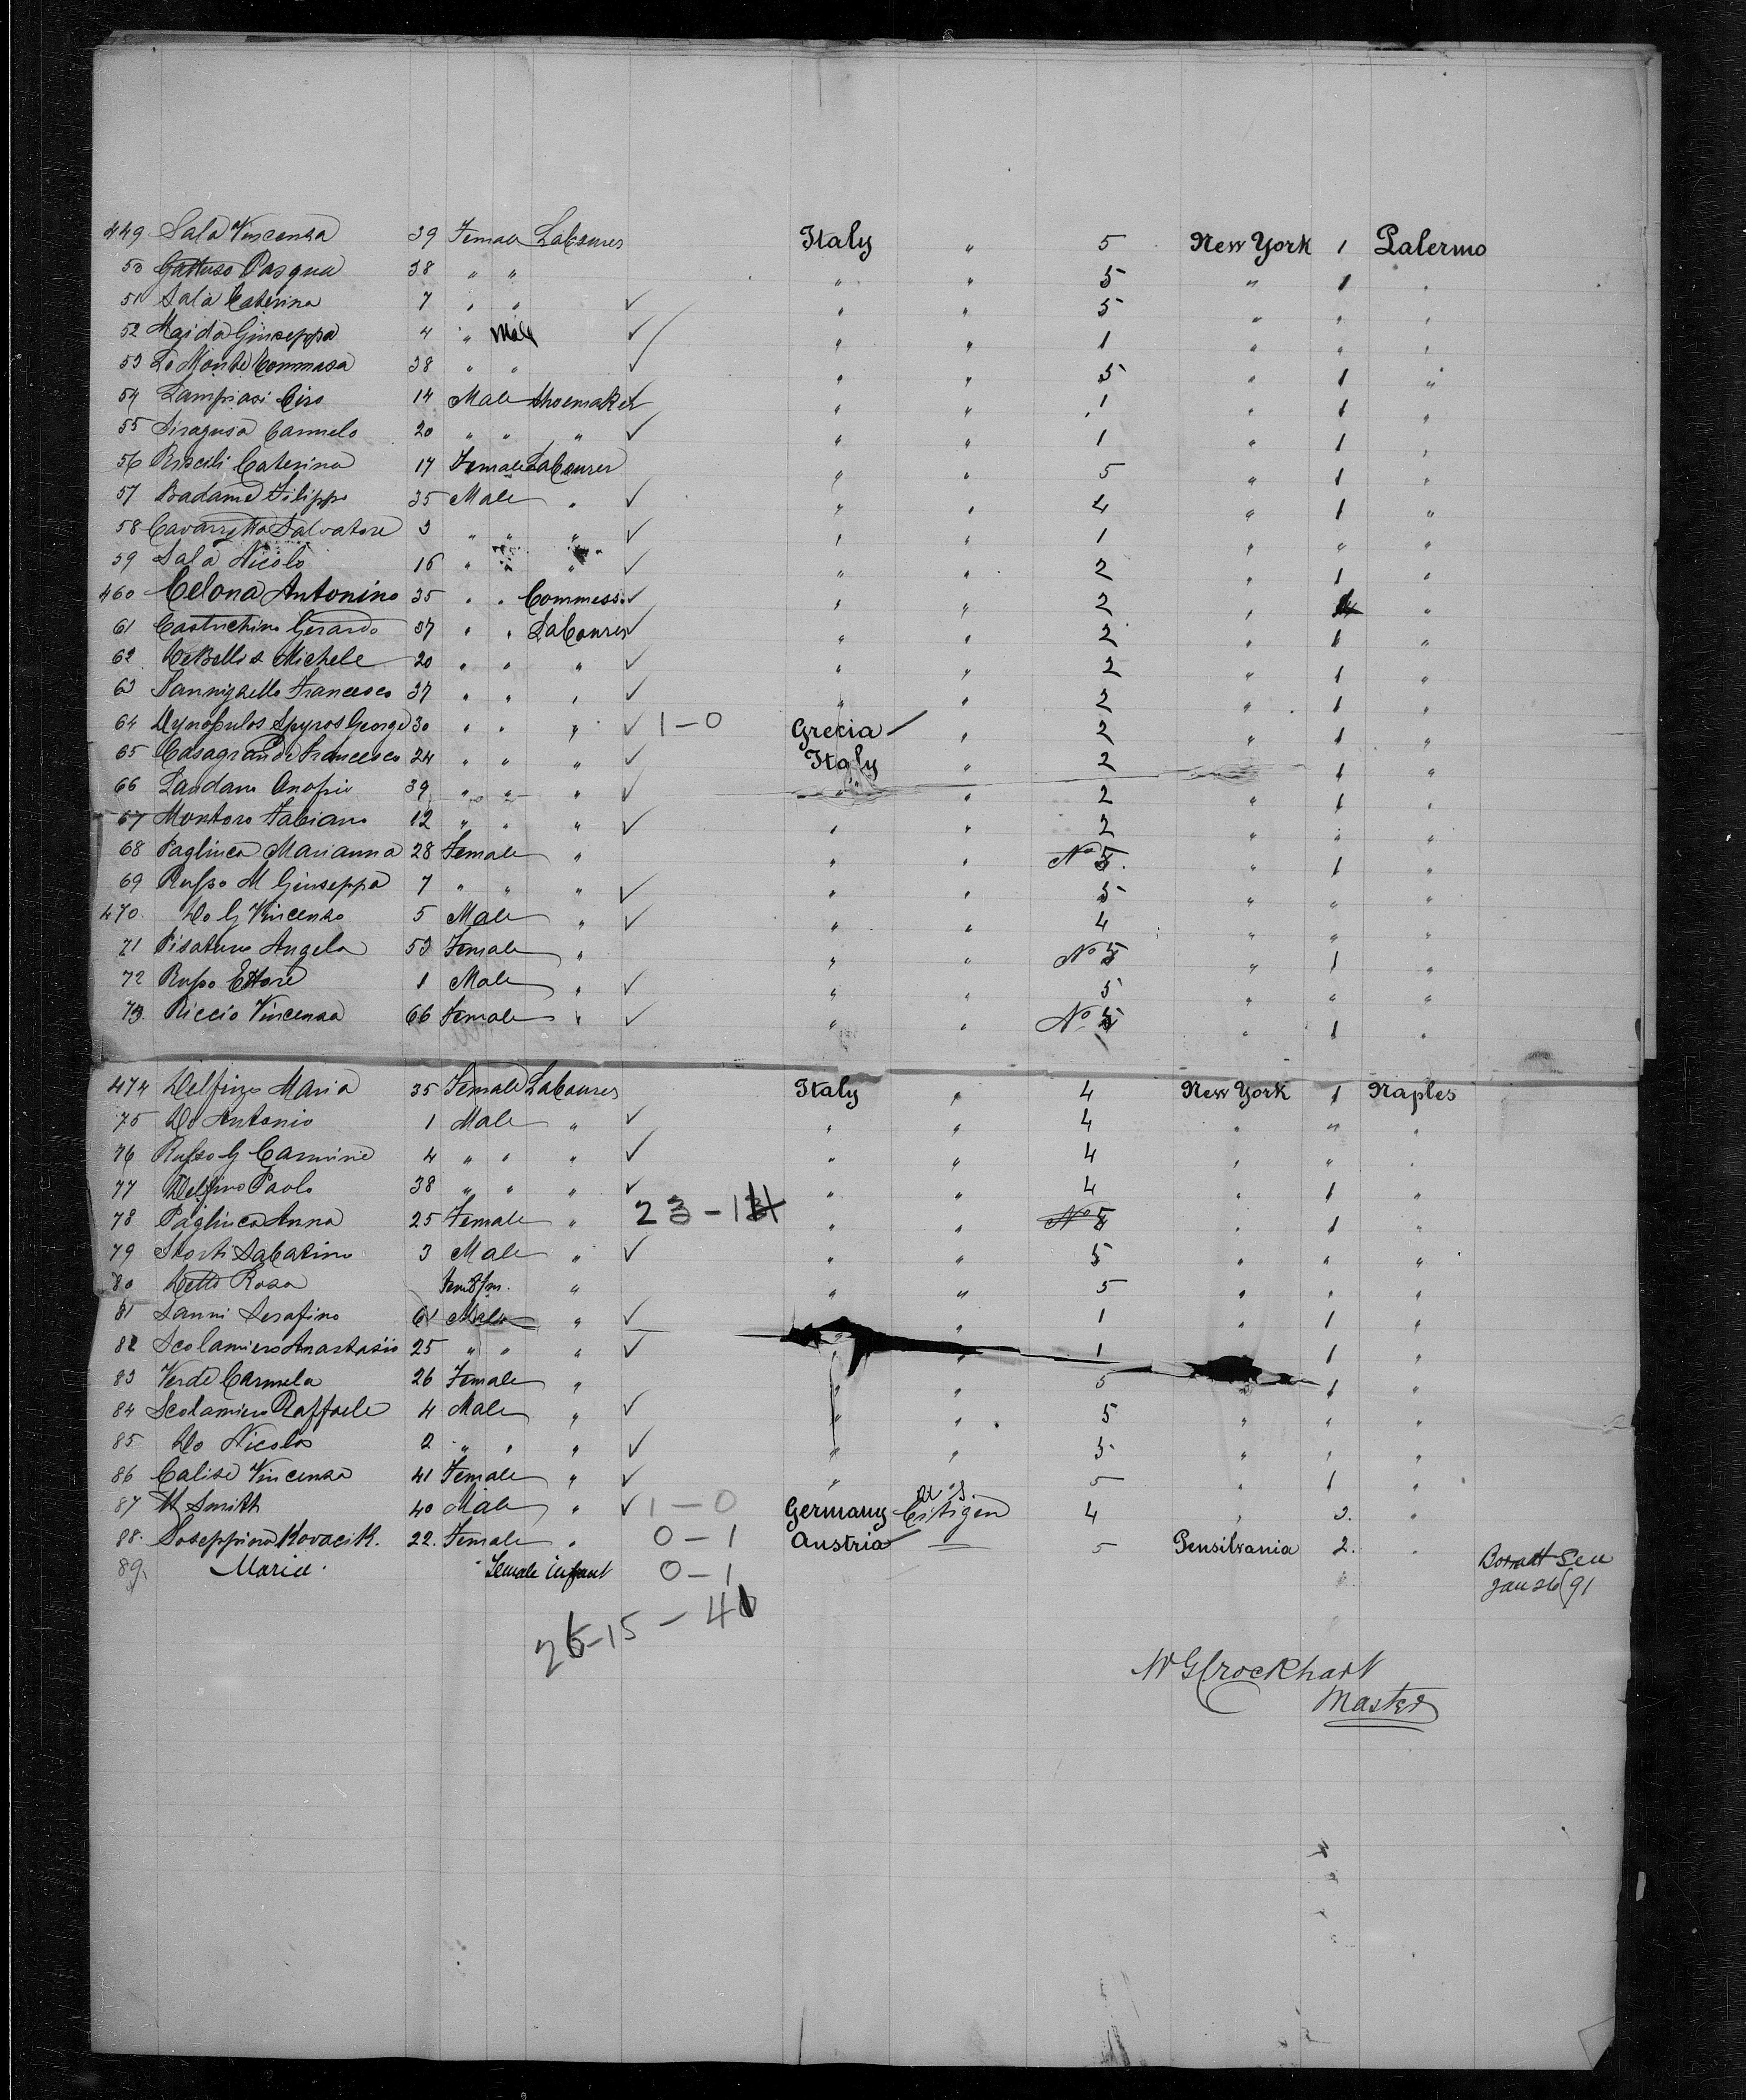 449 Sala Vincenza 39 Female Labourer Italy " 5 New York 1 Palermo
50 Gattuso Pasqua 38 " " " " 5 " 1 "
51 Sala Caterina 7 " " ✓ " " 5 " " "
52 Maida Giuseppa 4 " Male ✓ " " 1 " " "
53 Lo Monte Tommasa 38 " " ✓ " " 5 " 1 "
54 Lampiasi Ciro 14 Male Shoemaker ✓ " " 1 " 1 "
55 Siragusa Carmelo 20 " " " ✓ " " 1 " 1 "
56 Caterina 17 Female Labourer " " 5 " 1 "
57 Badame Filippo 35 Male " ✓ " " 4 " 1 "
58 Cavarretta Salvatore 3 " " " ✓ " " 1 " " "
59 Sala Nicolò 16 " " " ✓ " " 2 " 1 "
460 Celona Antonino 35 " " Commess. ✓ " " 2 " "
61 Castuchino Gerardo 37 " " Labourer ✓ " " 2 " 1 "
62 DeBellis Michele 20 " " " ✓ " " 2 " 1 "
63 Sannizzello Francesco 37 " " " ✓ " " 2 " 1 "
64 Dynopulos Spyros George 30 " " " ✓ 1-0 Grecia " 2 " 1 "
65 Casagrande Francesco 24 " " " ✓ Italy " 2 1 "
66 Landano Onofrio 39 " " " ✓ " " 2 " 1 "
67 Montoro Fabiano 12 " " " ✓ " " 2 " " "
68 Pagliuca Marianna 28 Female " " " No 5 " 1 "
69 Russo M Giuseppa 7 " " " ✓ " " 5 " " "
470 Do G Vincenzo 5 Male " ✓ " " 4 " " "
71 Pisaturo Angela 53 Female " " " No 5 " 1 "
72 Russo Ettore 1 Male " ✓ " " 5 " " "
73. Riccio Vincenza 66 Female " ✓ " " No 5 " 1 "
474 Delfino Maria 35 Female Labourer Italy " 4 New York 1 Naples
75 Do Antonio 1 Male " ✓ " " 4 " " "
76 Russo G Carmine 4 " " " ✓ " " 4 " " "
77 Delfino Paolo 38 " " " ✓ " " 4 " 1 "
78 Pagliuca Anna 25 Female " 23-14 " " No 5 " 1 "
79 Storti Sabatino 3 Male " ✓ " " 5 " " "
80 Detto Rosa Fem 8/m. " " " 5 " " "
81 Sanni Serafino 61 Male " ✓ " 1 " 1 "
82 Scolamiero Anastasio 25 " " " ✓ " " 1 1 "
83 Verde Carmela 26 Female " " " 5 " 1 "
84 Scolamiero Raffaele 4 Male " ✓ " " 5 " " "
85 Do Nicola 2 " " " ✓ " " 5 " " "
86 Calise Vincenza 41 Female " ✓ " 5 " 1 "
87 H Smith 40 Male " ✓ 1-0 Germany U.S. Citizen 4 " 2. "
88. Joseppina Kovacik. 22. Female " 0-1 Austria 5 Pensilvania 2. "
89. Maria Female infant 0-1 Born at Sea
Jan 26/91
26-15-41
W G Crockhart
Master